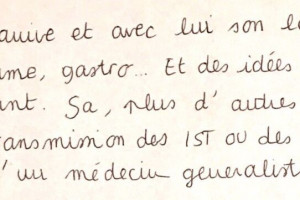 arrive et avec lui son l
ume, gastro... Et des idées
ant. Sa, plus d'autres
ransmission des IST ou des
d'un médecin generalist